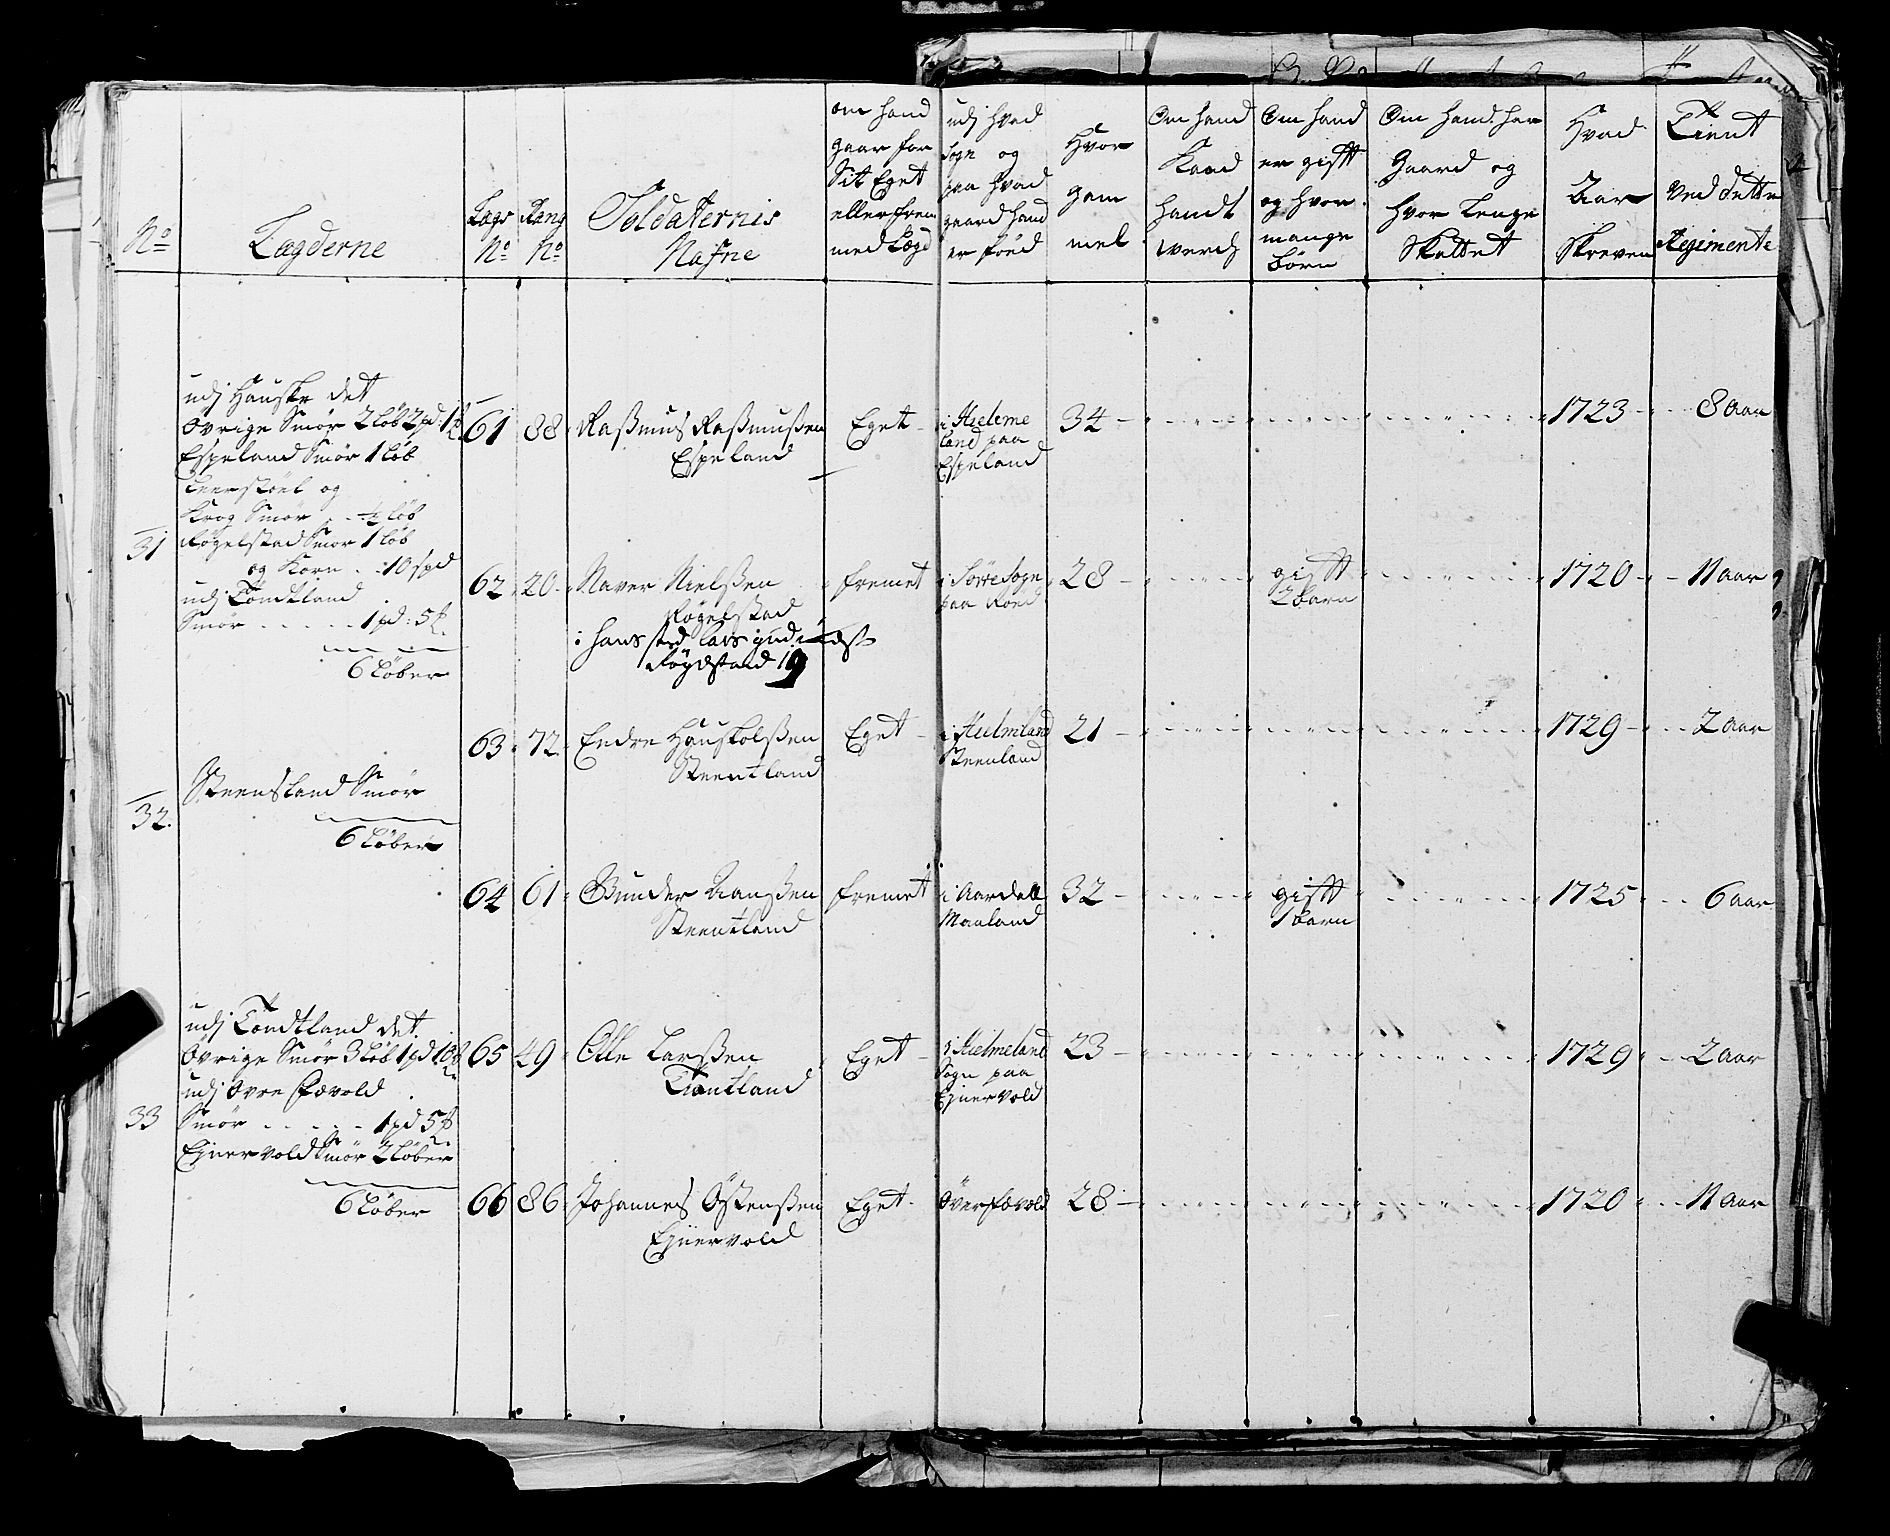 No
Lægderne
Lægs No
Rang No
Soldaternis Nafne
om hand gaar for Sit Eget eller frem med Lægd
udj hvad Sogn og paa hvad gaard hand er föed
Hvor gam mel
Om hand Kand handt werch
Om hand er gifft og hvor mange börn
Om hand har Gaard og hvor Lenge Skattet
Hvad Aar Skreven
Tient ved dette Regimente
31
udj Hauske det
övrige Smör 2 Löb 2 pd 1
Espeland Smör 1 Löb
og
Krog Smör . . ½ Löb
Fögelstad Smör 1 Löb
og Korn . . 10 spd
udj Töndtland
Smör . . . . . 1 pd : 5
6 Löber
61 88 Raßmus Raßmußen
Espeland
Eget
i Hielme
land paa
Espeland
34
1723
8 aar
62 20 Naver Nielßen
Fögelstad
i hans sted Lars
Fögelstad 19
fremet
i Sörre Sogn
paa
28
gifft
2 barn
1720
11 aar
32.
Steensland Smör
6 Löber
63 72 Endre Hauskolßen
Steentland
Eget
i Hielmland
Steenland
21
1729
2 aar
64 61 Gunder Aanßen
Steentland
fremet
i Aardall
Maaland
32
gifft
1 barn
1725
6 aar
33
udj Töndtland det
övrige Smör 3 Löb 1 pd 10
udj övre Fævold
Smör . . . . . 1 pd 5
Ejnervold Smör 2 Löber
6 Löber
65 49 Olle Larßen
Töntland
Eget
i Hielmeland
Sogn paa
Ejnervold
23
1729
2 aar
66 86 Johannes Östenßen
Ejnervold
Eget
Över fævold
28
1720
11 aar